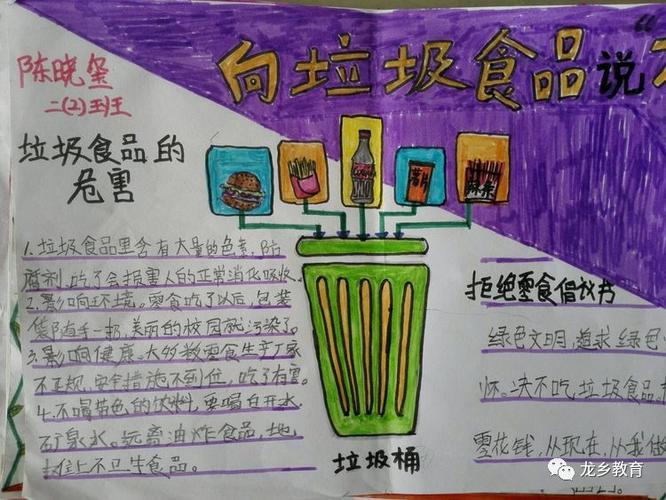 向垃圾食品说“
陈晓
二(2)班
垃圾食品的
危害
薯片
辣条
1.垃圾食品里含有大量的色素,防
腐剂,吃了会损害人的正常消化吸收。
2.影响环境。零食吃了以后,包装
袋随手一扔,美丽的校园就污染了。
3.影响健康。大多数零食生产厂家
不正规,安全措施不到位,吃了有害。
4.不喝带色的饮料,要喝白开水
矿泉水。远离油炸食品,地
摊上不卫生食品。
垃圾桶
拒绝零食倡议书
绿色文明,追求绿色
怀。决不吃垃圾食品。
零花钱,从现在,从我做
龙乡教育